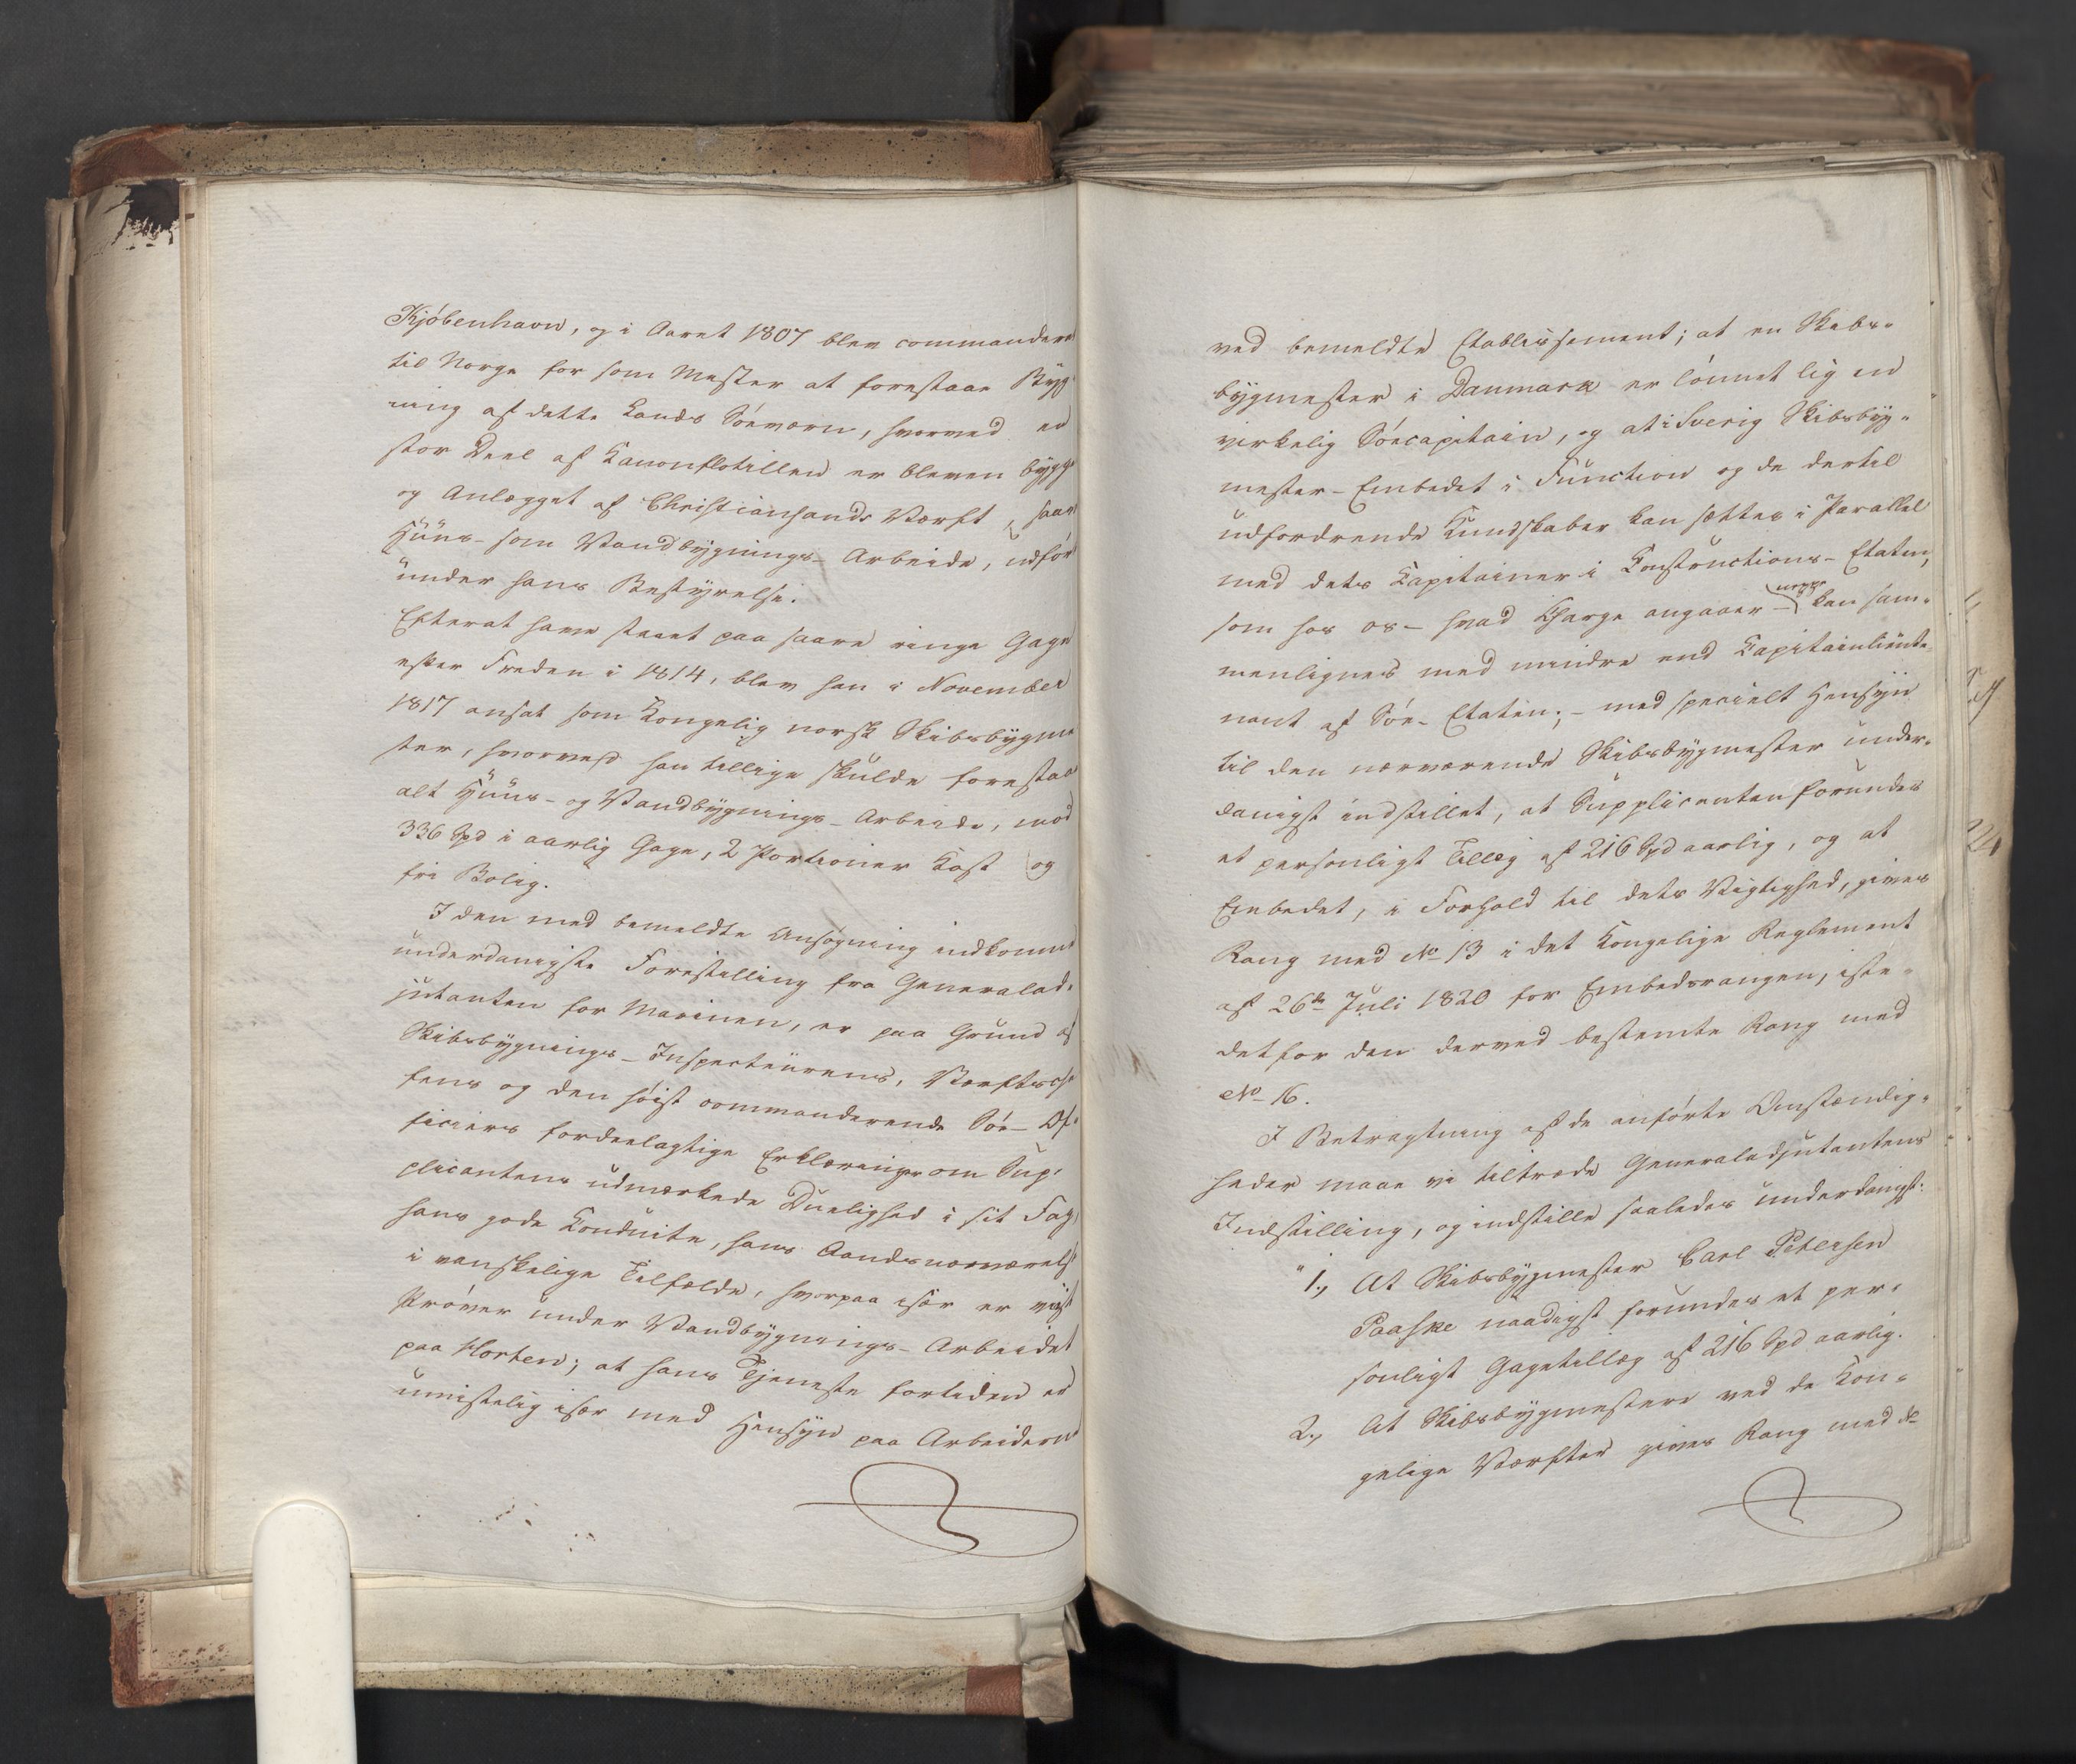 Kjöbenhavn, og i Aaret 1807 blev commandere
til Norge for som Mester at forestaae Byg
ning af dette Lands Söeværn, hvorved en
stor Deel af Kanonflotillen er bleven bygg
og Anlægget af Christiansands Værft, saav
Huus- som Vandbygnings-Arbeide, udför
under hans Bestyrelse.
Efterat have staaet paa saare ringe Gage
efter Freden i 1814, blev han i November
1817 ansat som Kongelig norsk Skibsbygme
ster, hvorved han tillige skulde forestaa
alt Huus- og Vandbygnings-Arbeide, mod
336 Spd i aarlig Gage, 2 Portioner Kost og
fri Bolig.
I den med bemeldte Ansøgning indkomne
underdanigste Forestilling fra Generalad-
jutanten for Marinen, er paa Grund af
Skibsbygnings-Inspecteurens, Værftsche
fens og den höist commanderende Söe-Of-
ficiers fordeelagtige Erklæringer om Sup-
plicantens udmærkede Duelighed i sit Fag,
hans gode Conduite, hans Aandsnærværelse
i vanskelige Tilfælde, hvorpaa især er viist
Pröver under Vandbygnings-Arbeidet
paa Horten; at hans Tjeneste fortiden er
umistelig især med Hensyn paa Arbeiderne
ved bemeldte Etablissement; at en Skibs-
bygmester i Danmark er lönnet lig en
virkelig Söecapitain, og at i Sverig Skibsbyg-
mester-Embedet i Function og de dertil
udfordrende Kundskaber kan sættes i Parallel
med dets Capitainer i Constructions-Etaten,
som hos os - hvad Charge angaaer - neppe kan sam-
menlignes med mindre end Capitainlieute
nant af Söe-Etaten; - med specielt Hensyn
til den nærværende Skibsbygmester under-
danigst indstillet, at Supplicanten forundes
et personligt Tillæg af 216 Spd aarlig, og at
Embedet, i Forhold til dets Vigtighed, gives
Rang med No 13 i det Kongelige Reglement
af 26de Juli 1820 for Embedsrangen, iste-
detfor den derved bestemte Rang med
No 16.
I Betragtning af de anförte Omstændig-
heder maae vi tiltræde Generaladjutantens
Indstilling, og indstille saaledes underdanigst:
"1., At Skibsbygmester Carl Petersen
Paaske naadigst forundes et per-
sonligt Gagetillæg af 216 Spd aarlig.
2., At Skibsbygmestere ved de Kon-
gelige Værfter gives Rang med No